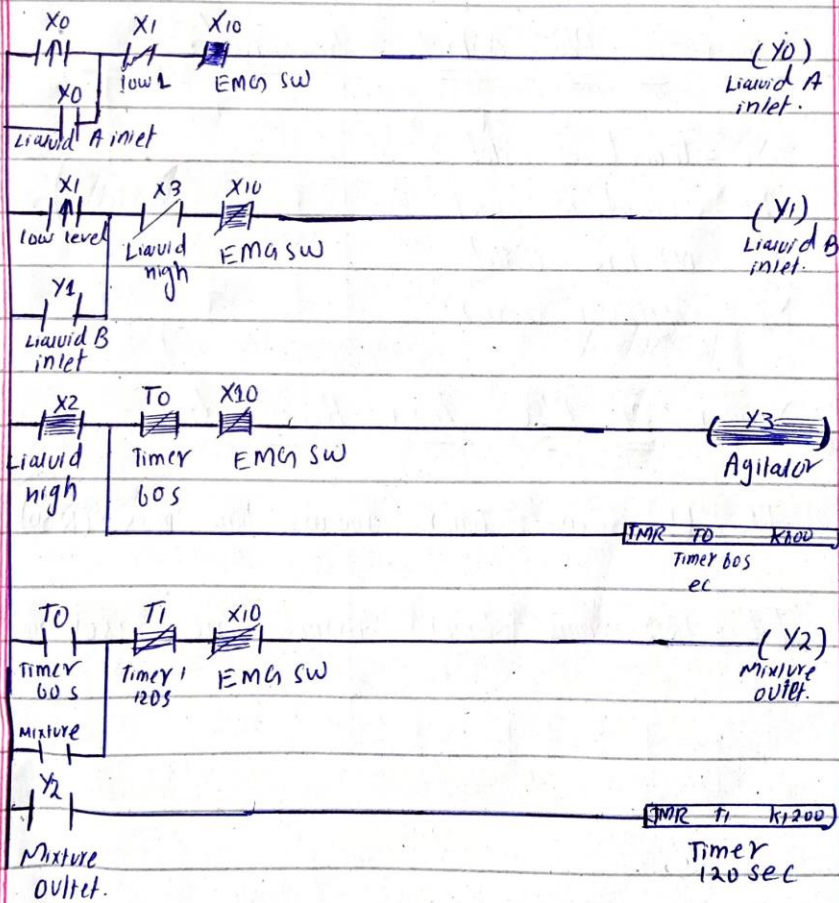 X0 X1 X10
(Y0)
low 1 EMG SW
Liauid A
inlet.
X0
Liauid A inlet
X1 X3 X10
(Y1)
low level Liauid
high EMG SW
Liauid B
inlet.
Y1
Liauid B
inlet
X2 T0 X10
(Y3)
Liauid
high
Timer
60s
EMG SW
Agilator
TMR T0 K600
Timer 60s
ec
T0 T1 X10
(Y2)
Timer
60 s
Timer 1
120s
EMG SW
Mixture
outlet.
Mixture
Y2
TMR T1 K1200
Mixture
oultet.
Timer
120 sec